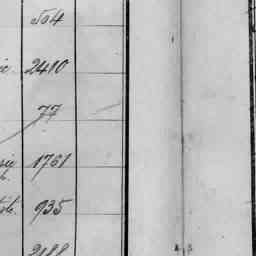 504
2410
77
1761
935
2188